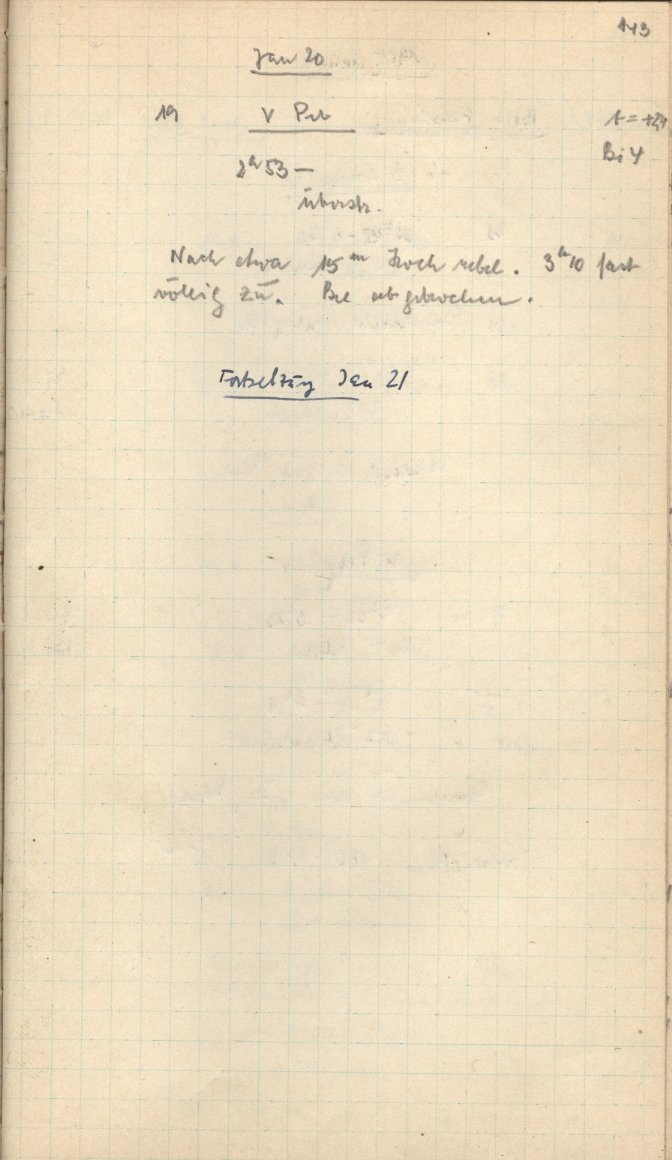 143
Jan 20
19 V Per t = +2,4
Bi 4
2ʰ 53 —
überstr.
Nach etwa 15ᵐ Hochnebel. 3ʰ10 fast
völlig zu. Bel abgebrochen.
Fortsetzung Jan 21